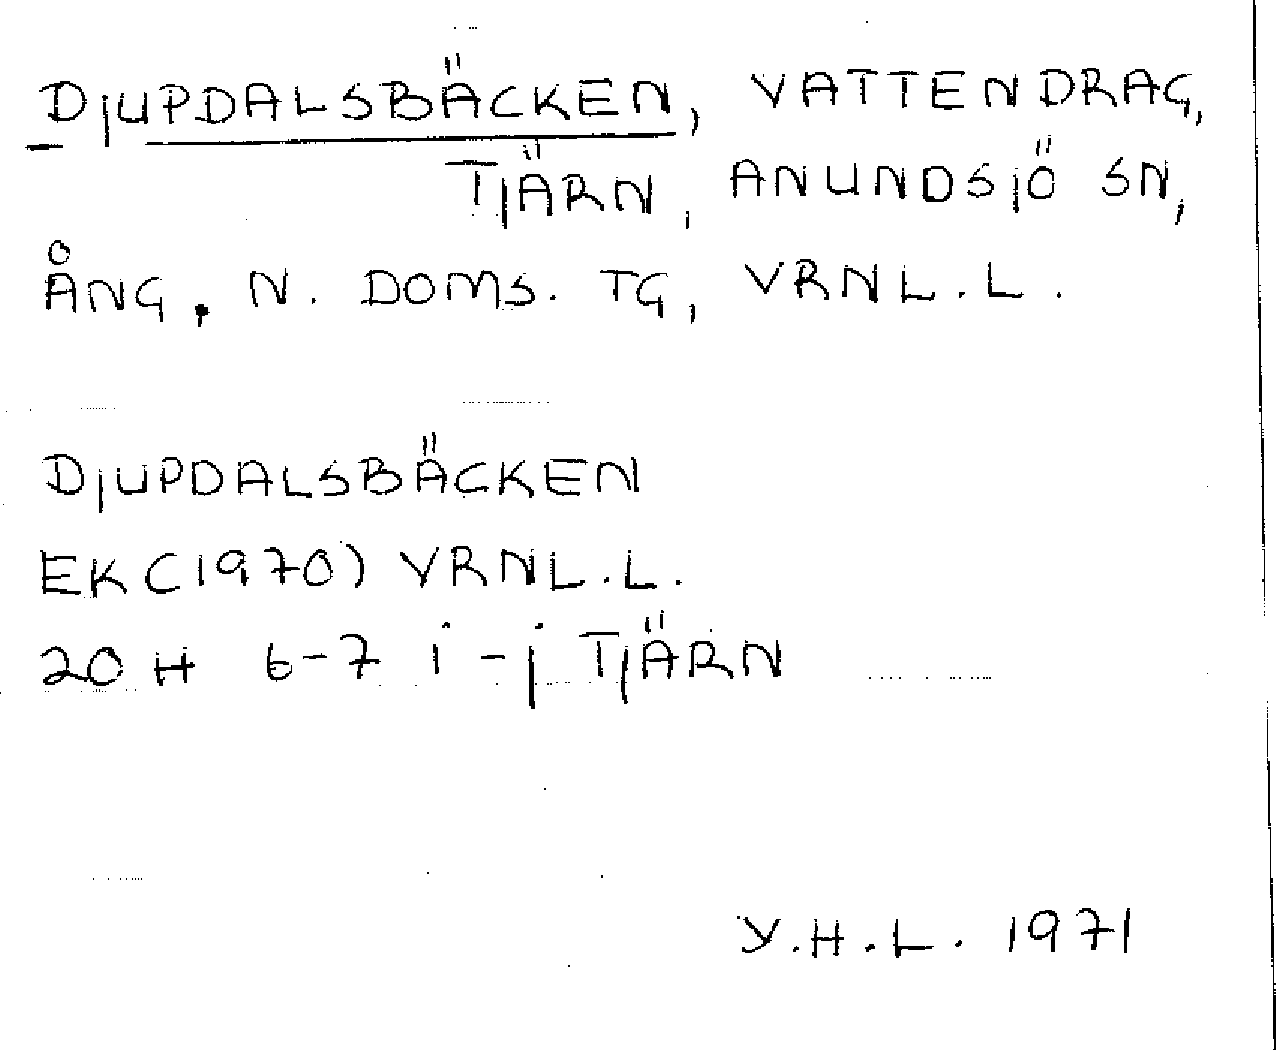 DJUPDALSBÄCKEN, VATTENDRAG,
TJÄRN, ANUNDSJÖ SN,
ÅNG, N. DOMS. TG, VRNL.L.
DJUPDALSBÄCKEN
EK(1970) VRNL.L.
20 H 6-7 i-j TJÄRN
Y.H.L. 1971